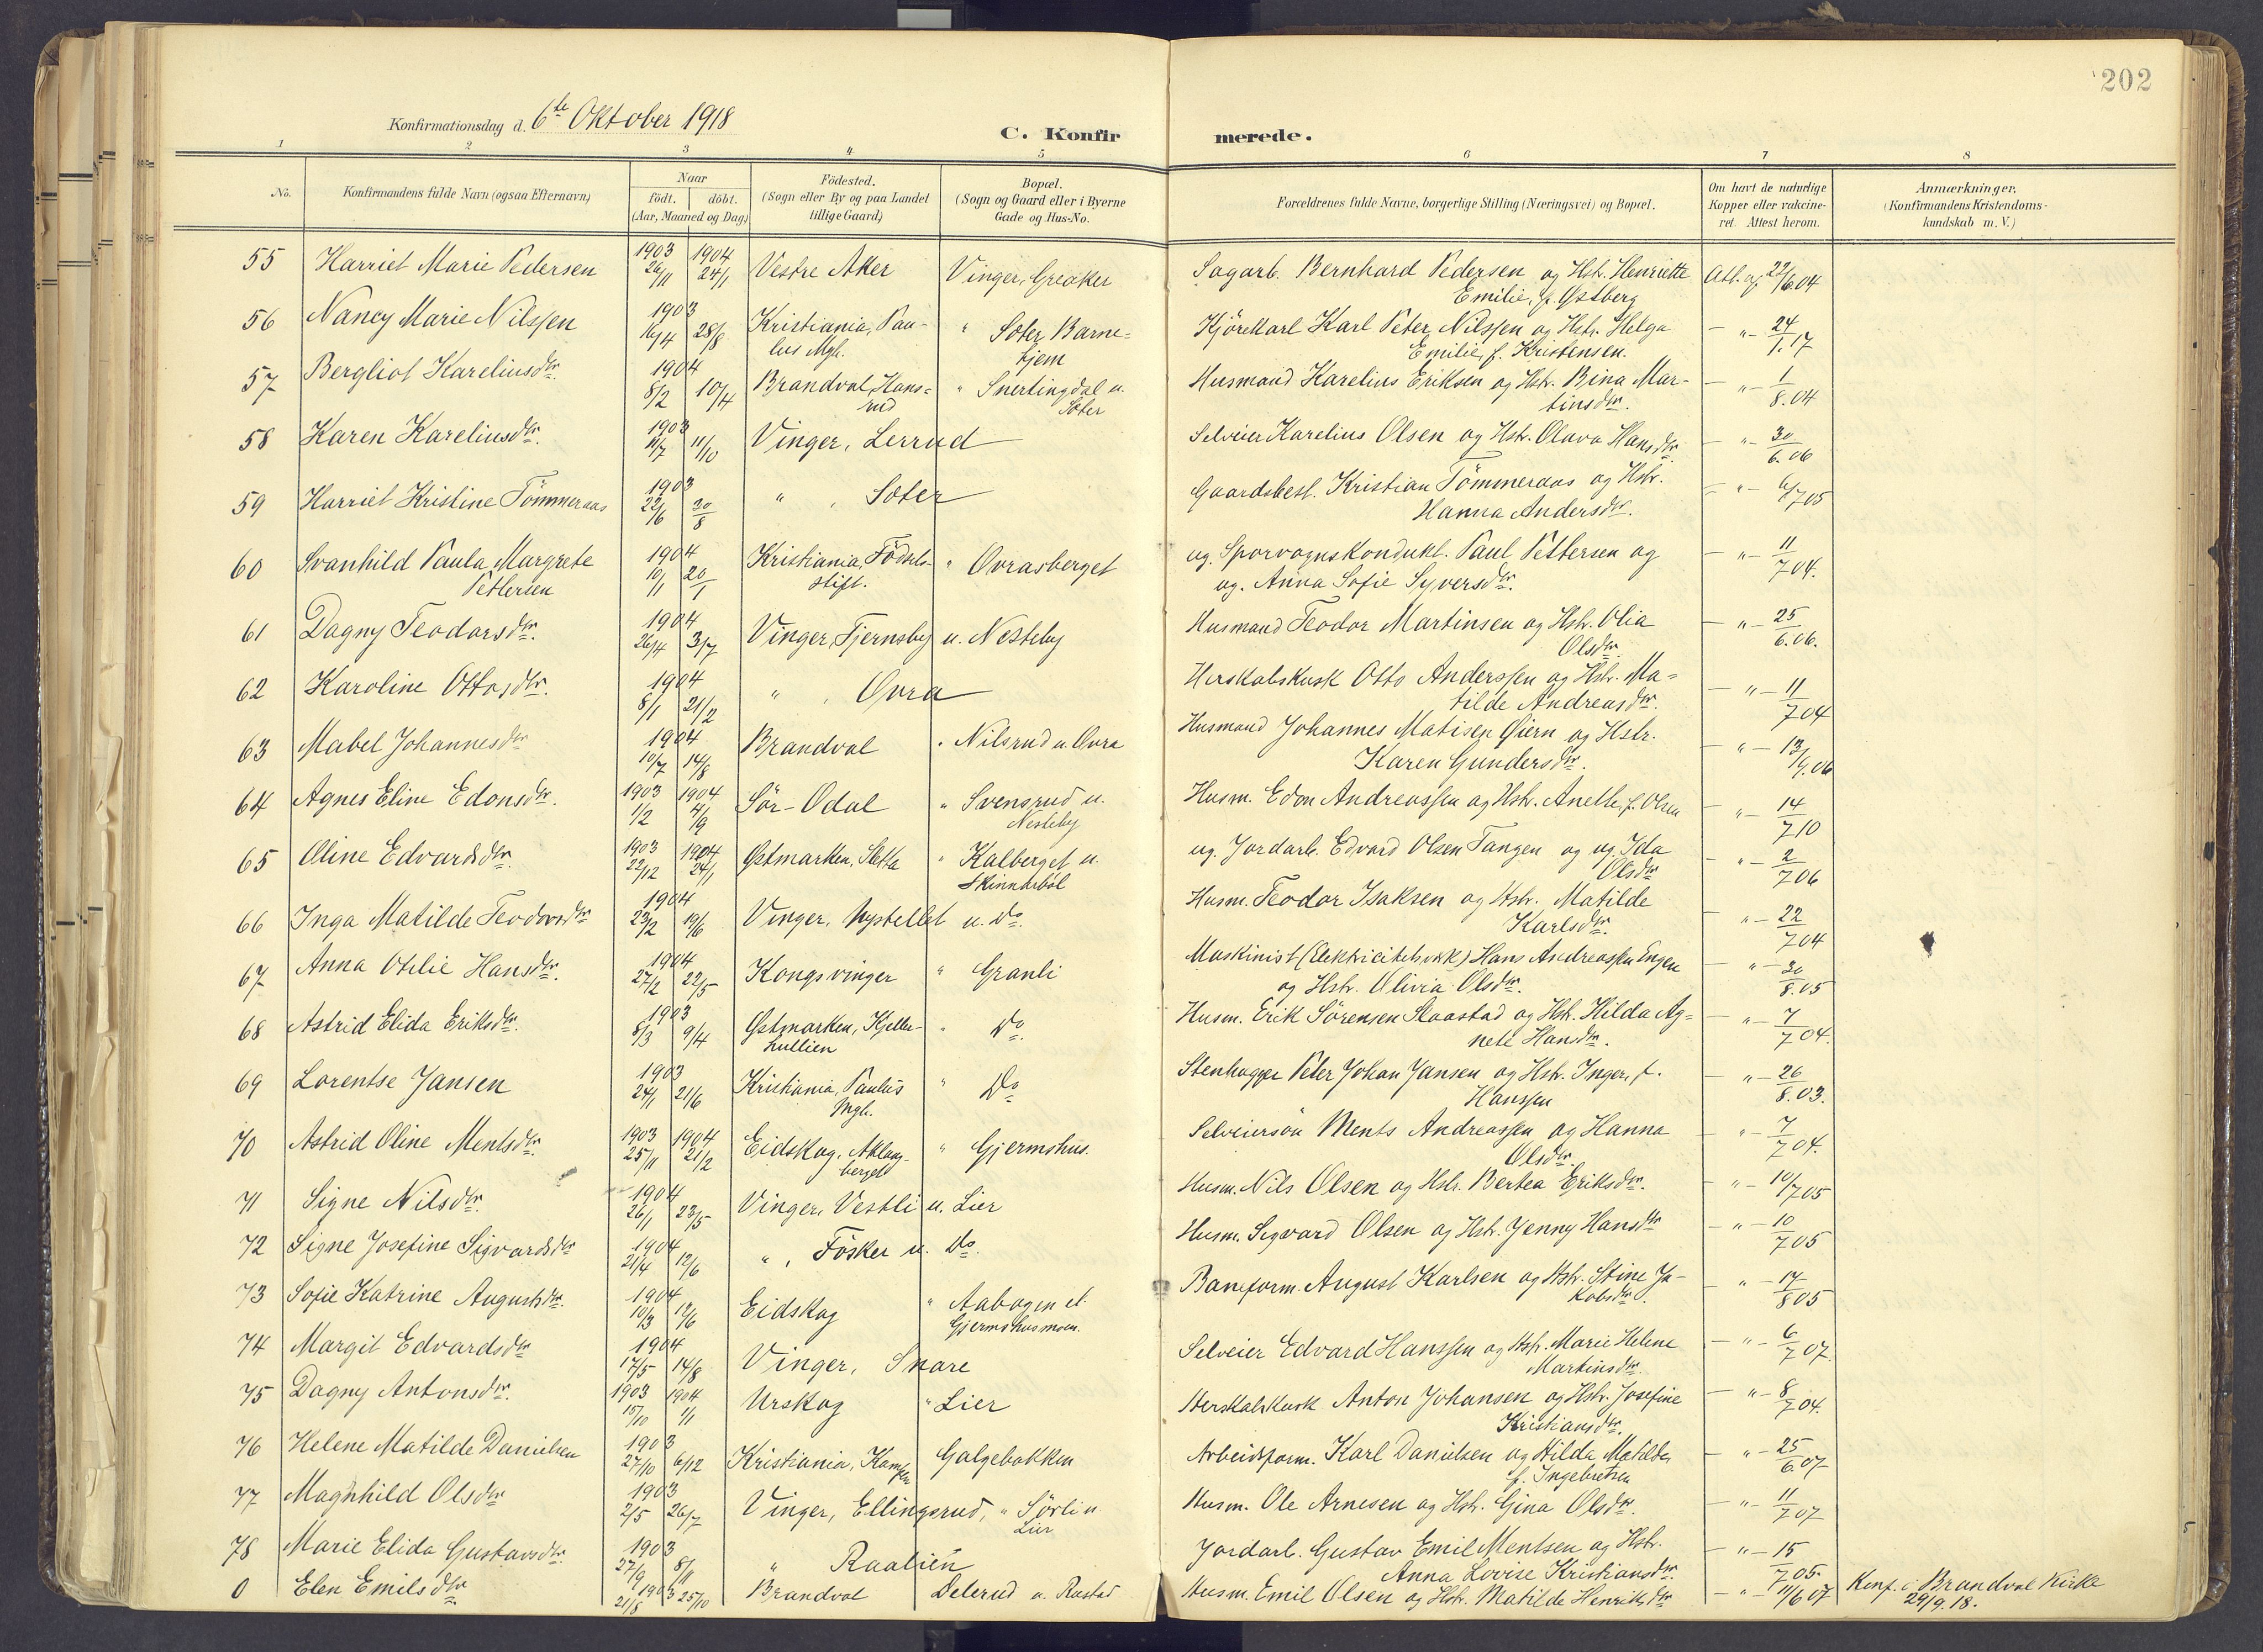 202
Konfirmationsdag d. 6te Oktober 1918
C. Konfirmerede.
1 2 3 4 5 6 7 8
No. Konfirmandens fulde Navn (ogsaa Efternavn) Naar födt. döbt. (Aar, Maaned og Dag) Födested. (Sogn eller By og paa Landet tillige Gaard) Bopæl. (Sogn og Gaard eller i Byerne Gade og Hus-No. Forældrenes fulde Navne, borgerlige Stilling (Næringsvei) og Bopæl. Om havt de naturlige Kopper eller vakcineret. Attest herom. Anmærkninger. (Konfirmandens Kristendomskundskab m. V.)
55 Harriet Marie Pedersen 1903 26/11 1904 24/1 Vestre Aker Vinger, Greaker Sagarb. Bernhard Pedersen og Hstr. Henriette Emilie, f. Østberg Att. af 22/6 04
56 Nancy Marie Nilssen 1903 16/4 28/8 Kristiania, Paulus Mgh. " Soter Barnehjem Kjörekarl Karl Peter Nilssen og Hstr. Helga Emilie, f. Kristensen. — " — 24/1.17
57 Bergliot Kareliusdtr. 1904 8/2 10/4 Brandval, Hansrud " Snertingdal u. Soter Husmand Karelius Eriksen og Hstr. Bina Martinsdtr. — " — 1/8.04
58 Karen Kareliusdtr. 1903 11/10 Vinger, Lerrud Selveier Karelius Olsen og Hstr. Olava Hansdtr. — " — 30/6.06
59 Harriet Kristine Tömmeraas 1903 22/6 30/8 " , Soter Gaardbest. Kristian Tömmeraas og Hstr. Hanna Andersdtr. — " — 6/7 05
60 Svanhild Paula Margrete Pettersen 1904 10/1 20/1 Kristiania, Födselsstift. " Ovrasberget ug. Sporvognskondukt. Paul Pettersen og ug. Anna Sofie Syversdtr. — " — 11/7 04.
61 Dagny Teodorsdtr. 1904 26/4 3/7 Vinger, Tjernsby u. Nesteby Husmand Teodor Martinsen og Hstr. Olia Olsdtr. — " — 25/6.06.
62 Karoline Ottosdtr. 1904 8/1 21/2 " , Ovra Herskabskusk Otto Anderssen og Hstr. Matilde Andreasdtr. — " — 11/7 04
63 Mabel Johannesdtr 1904 10/7 14/8 Brandval " Nilsrud u. Ovra Husmand Johannes Matisen Øiern og Hstr. Karen Gundersdtr. — " — 13/9.06
64 Agnes Eline Edonsdtr. 1903 1/2 1904 4/9 Sör-Odal " Svensrud u. Nesteby Husm. Edon Andreassen og Hstr. Anette, f. Olsen — " — 14/7 10
65 Oline Edvardsdtr. 1903 22/12 1904 24/1 Østmarken, Sletta " Kalberget u. Skinnarböl ug. Jordarb. Edvard Olsen Tangen og ug. Ida Olsdtr — " — 2/7 06
66 Inga Matilde Teodorsdtr 1904 23/2 19/6 Vinger, Nystellet u. Do. Husm. Teodor Isaksen og Hstr. Matilde Karlsdtr. — " — 22/7 04
67 Anna Otilie Hansdtr. 1904 27/2 22/5 Kongsvinger " Granli Maskinist (Elektricitetsverk) Hans Andreassen Engen og Hstr. Olivia Olsdtr. — " — 30/8.05
68 Astrid Elida Eriksdtr. 1903 8/3 9/4 Østmarken, Kjellerhullien " Do. Husm. Erik Sörensen Slaastad og Hstr. Hilda Agnete Hansdtr. — " — 7/7 04.
69 Lorentse Jansen 1903 24/1 21/6 Kristiania, Paulus Mgh. " Do Stenhugger Peter Johan Jansen og Hstr. Inger, f. Hanssen — " — 26/8.03.
70 Astrid Oline Mentsdtr. 1903 25/11 1904 21/2 Eidskog, Aklangberget " Gjermshus. Selveiersön Ments Andreassen og Hanna Olsdtr. — " — 7/7 04.
71 Signe Nilsdtr. 1904 26/1 23/5 Vinger, Vestli u. Lier Husm. Nils Olsen og Hstr. Bertea Eriksdtr. — " — 10/7 05
72 Signe Josefine Sigvardsdtr 1904 21/4 12/6 " , Fösker u. Do. Husm. Sigvard Olsen og Hstr. Jenny Hansdtr — " — 10/7 05
73 Sofie Katrine Augustsdtr. 1904 10/3 12/6 Eidskog " Aabogen el. Gjermshusmoen. Baneform. August Karlsen og Hstr. Stine Jakobsdtr. — " — 17/8 05
74 Margit Edvardsdtr 1904 17/5 14/8 Vinger, Snare Selveier Edvard Hanssen og Hstr. Marie Helene Martinsdtr. — " — 6/7 07.
75 Dagny Antonsdtr. 1903 15/10 1904 1/1 Urskog " Lier Herskabskusk Anton Johansen og Hstr. Josefine Kristiansdtr. — " — 8/7 04.
76 Helene Matilde Danielsen 1903 27/10 6/12 Kristiania, Kampen Galgebakken Arbeidsform. Karl Danielsen og Hilda Matilde, f. Ingebretsen — " — 25/6.07
77 Magnhild Olsdtr 1903 2/5 26/7 Vinger, Ellingsrud, " Sörli u. Lier Husm. Ole Arnesen og Hstr. Gina Olsdtr. — " — 11/7 07
78 Marie Elida Gustavsdtr. 1903 27/9 8/11 " Raalien Jordarb. Gustav Emil Mentsen og Hstr. Anna Lovise Kristiansdtr. — " — 15/7 05.
0 Elen Emilsdtr 1903 21/8 25/10 Brandval Delerud u. Rastad Husm. Emil Olsen og Hstr. Matilde Henriksdtr — " — 11/6 07 Konf. i Brandval Kirke 29/9.18.